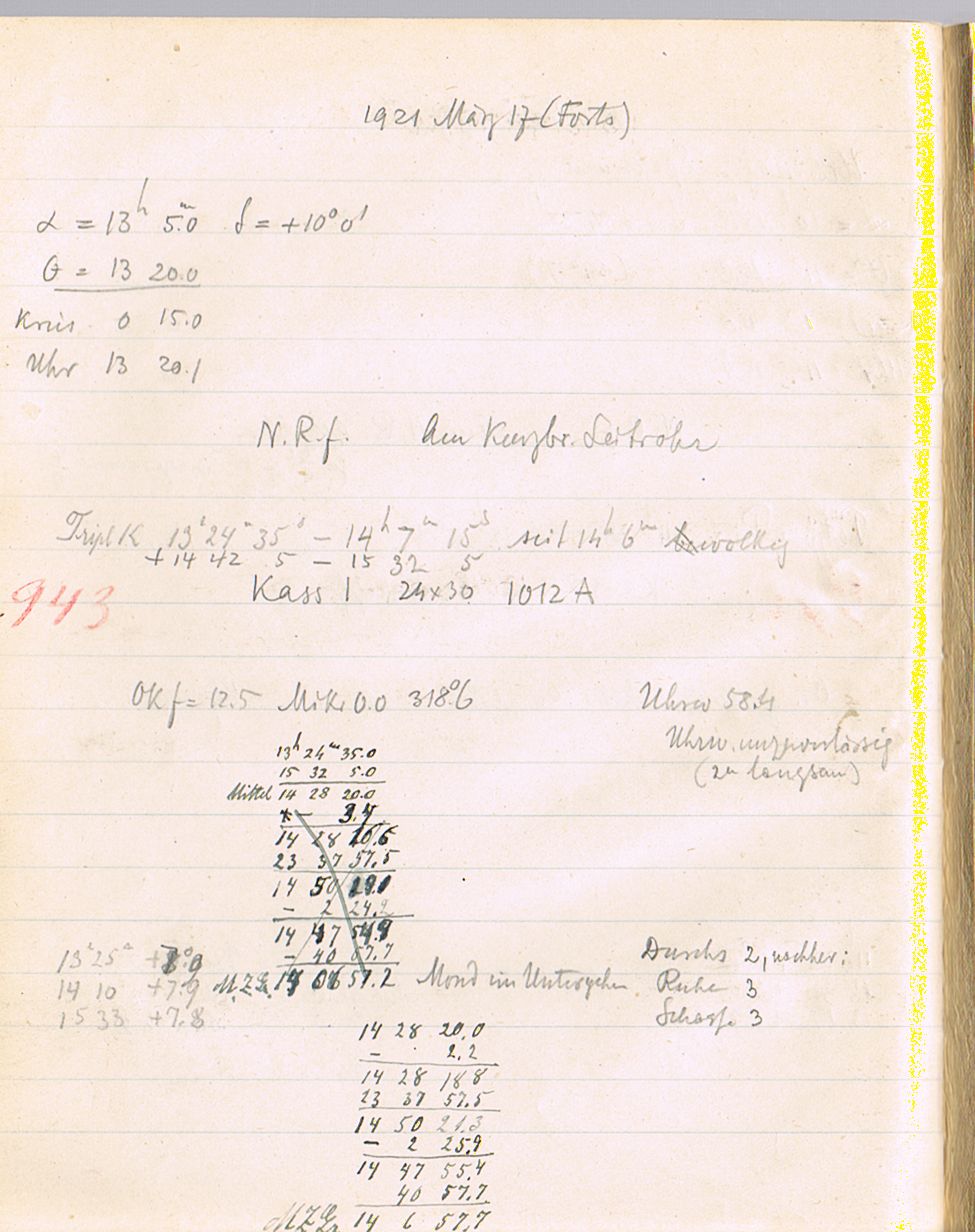 1921 März 17 (Forts)
α = 13h 5m.0 δ = +10° 0'
θ = 13 20.0
Kreis 0 15.0
Uhr 13 20.1
N.R.f. Am Kurzbr. Leitrohr
Tripl K 13h 24m 35s – 14h 7m 15s seit 14h 6m bewolkig
+ 14 42 5 – 15 32 5
Kass 1 24×30 1012 A
943
OK f = 12.5 Mikr 0.0 318°.6 Uhrw 58.4
Uhrw. unzuverlässig
(zu langsam)
13h 24m 35.0
15 32 5.0
Mittel 14 28 20.0
– 3.4
14 28 16.6
23 37 57.5
14 50
– 2 24.2
14 47
– 40 57.7
M.Z.Gr. 06 57.2 Mond im Untergehen
13h 25m +8°.0
14 10 +7.9
15 33 +7.8
Durchs 2, nachher:
Ruhe 3
Schärfe 3
14 28 20.0
– 2.2
14 28 18.8
23 37 57.5
14 50 21.3
– 2 25.9
14 47 55.4
40 57.7
MZGr 14 6 57.7